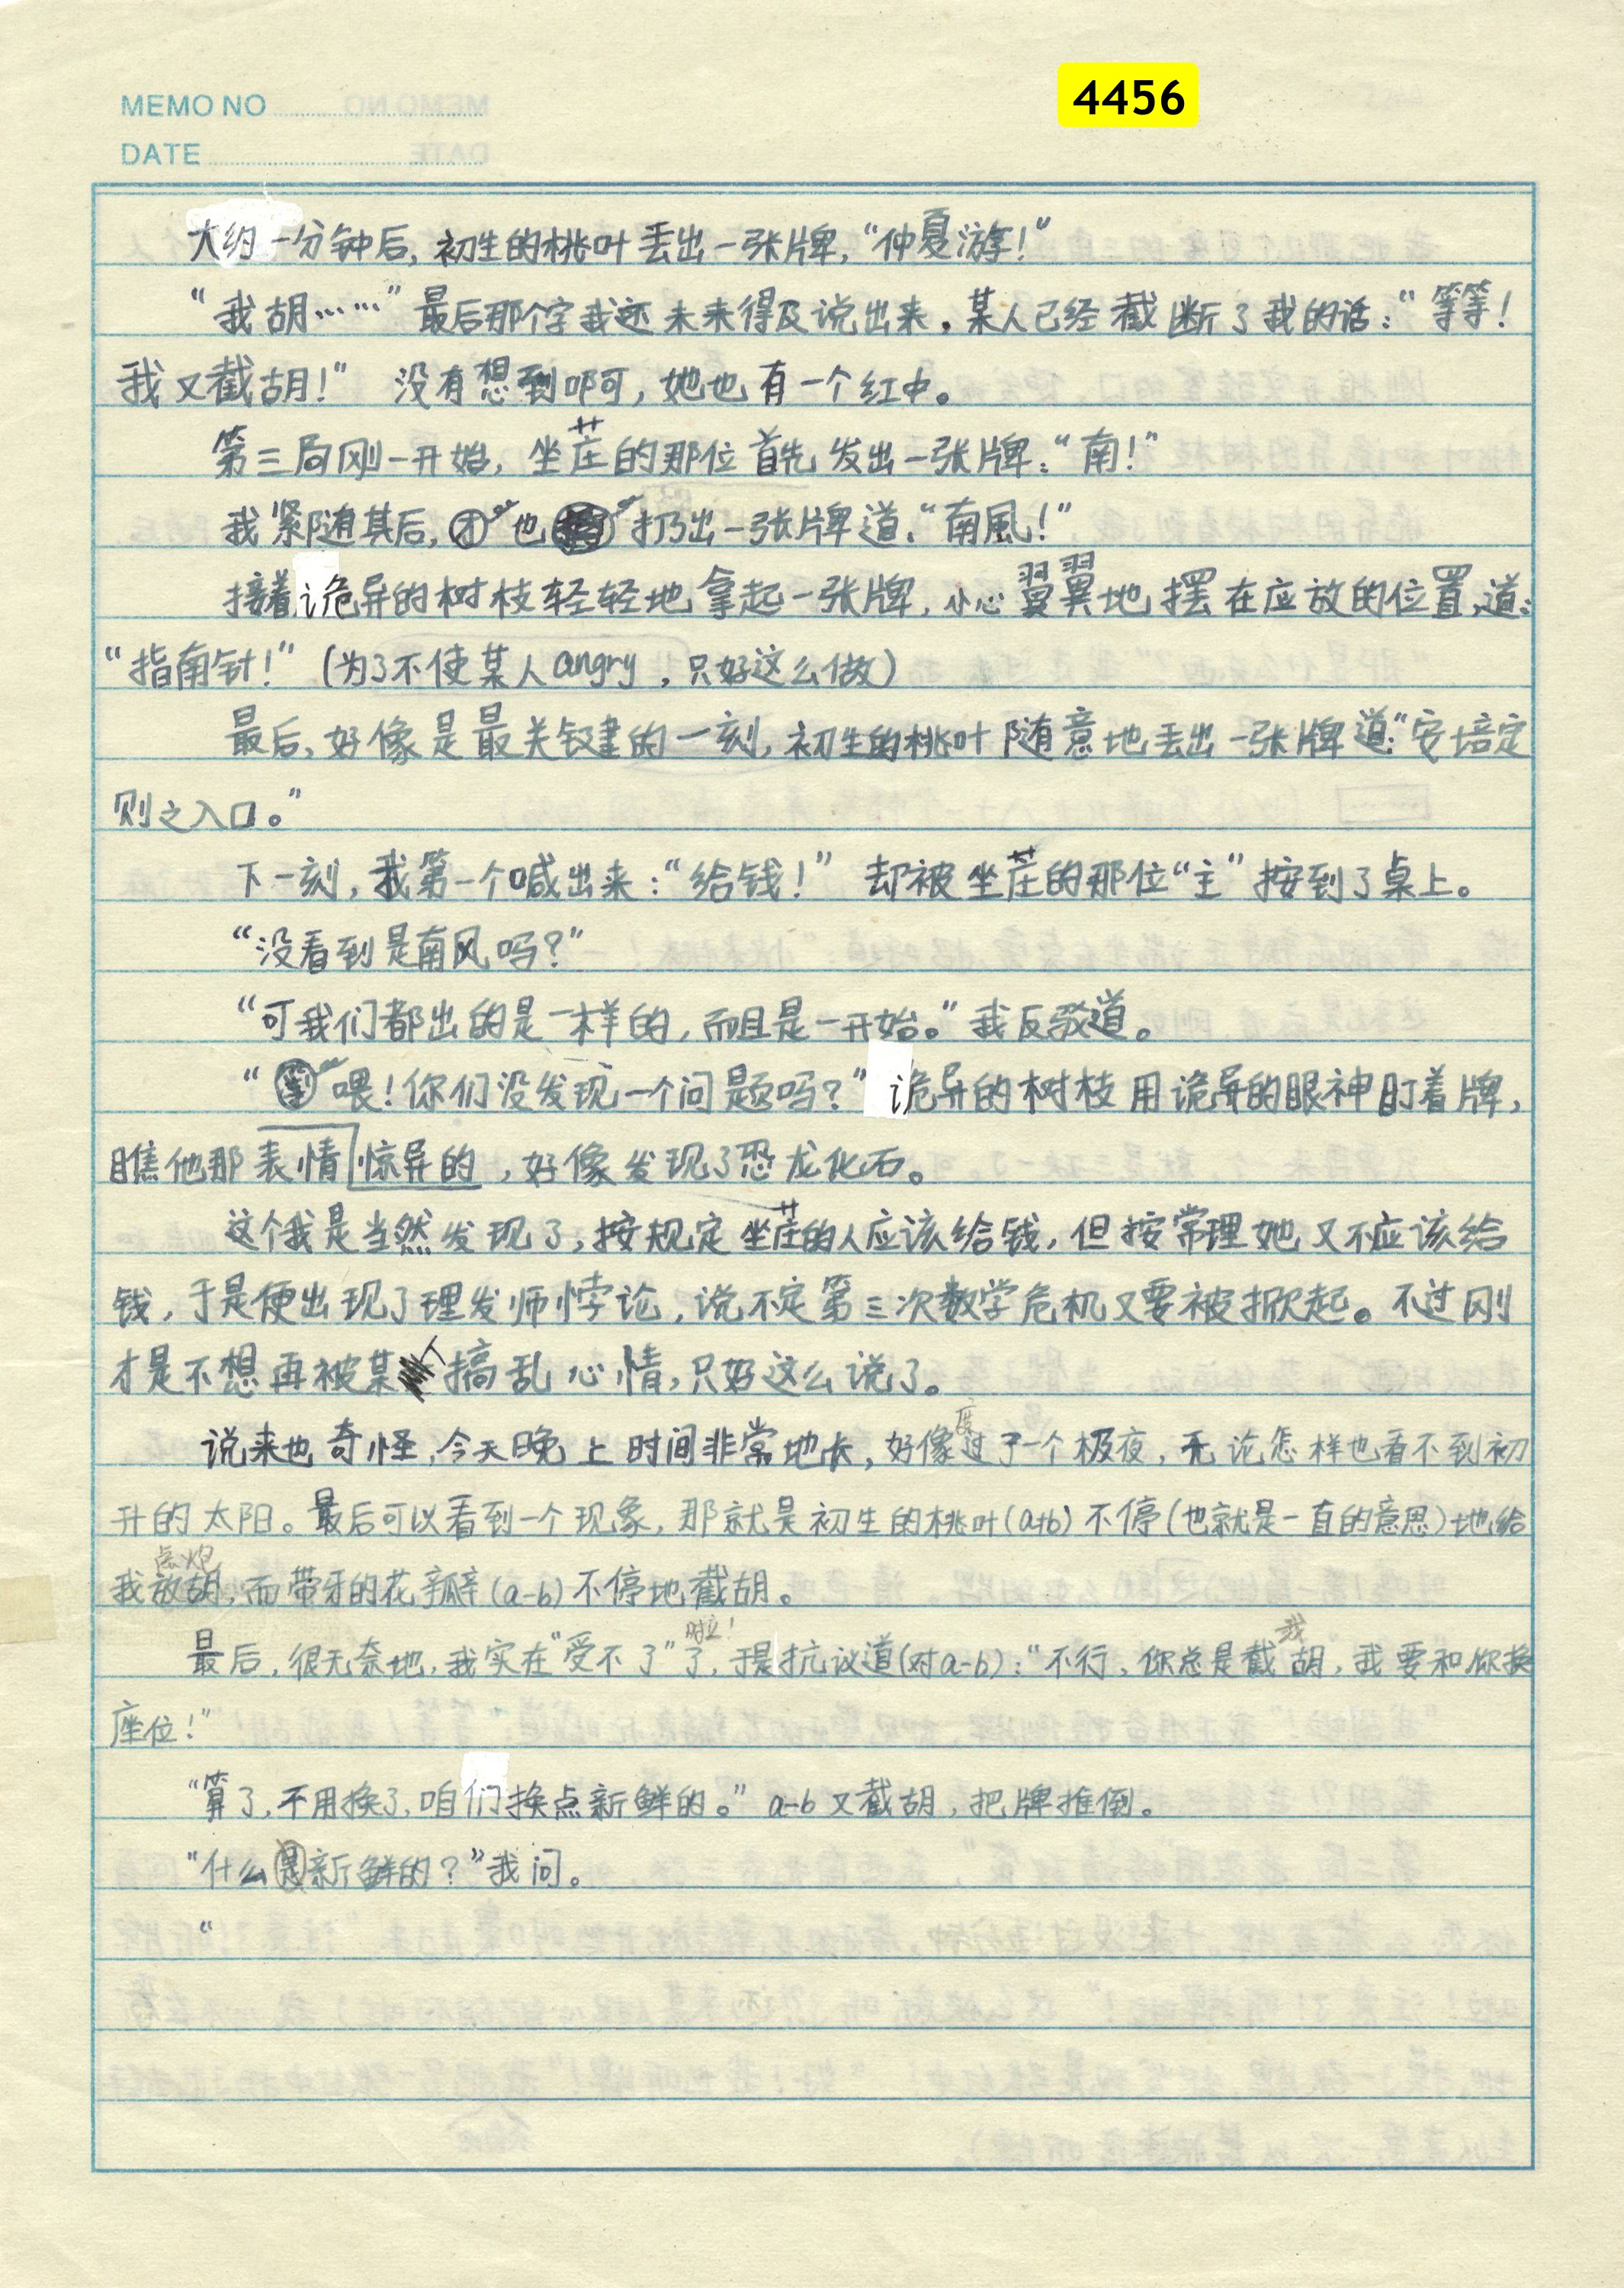 MEMO NO
4456
DATE
大约一分钟后，初生的桃叶丢出一张牌，“仲夏游！”
“我胡……”最后那个字我还未来得及说出来，某人已经截断了我的话：“等等！
我又截胡！” 没有想到啊可，她也有一个红中。
第三局刚一开始，坐庄的那位首先发出一张牌：“南！”
我紧随其后，也扔出一张牌道：“南風！”
接着诡异的树枝轻轻地拿起一张牌，小心翼翼地摆在应放的位置，道：
“指南针！”（为了不使某人angry，只好这么做）
最后，好像是最关键的一刻，初生的桃叶随意地丢出一张牌道：“安培定
则之入口。”
下一刻，我第一个喊出来：“给钱！” 却被坐庄的那位“主”按到了桌上。
“没看到是南风吗？”
“可我们都出的是一样的，而且是一开始。”我反驳道。
“喂！你们没发现一个问题吗？”诡异的树枝用诡异的眼神盯着牌，
瞧他那表情惊异的，好像发现了恐龙化石。
这个我是当然发现了，按规定坐庄的人应该给钱，但按常理她又不应该给
钱，于是便出现了理发师悖论，说不定第三次数学危机又要被掀起。不过刚
才是不想再被某人搞乱心情，只好这么说了。
度
说来也奇怪，今天晚上时间非常地长，好像过了一个极夜，无论怎样也看不到初
升的太阳。最后可以看到一个现象，那就是初生的桃叶(a+b)不停(也就是一直的意思)地给
点炮
我放胡，而带牙的花瓣(a-b)不停地截胡。
我
最后，很无奈地，我实在“受不了”了，于是抗议道(对a-b)：“不行，你总是截胡，我要和你换
座位！”
“算了，不用换了，咱们换点新鲜的。”a-b又截胡，把牌推倒。
“什么是新鲜的？”我问。
“